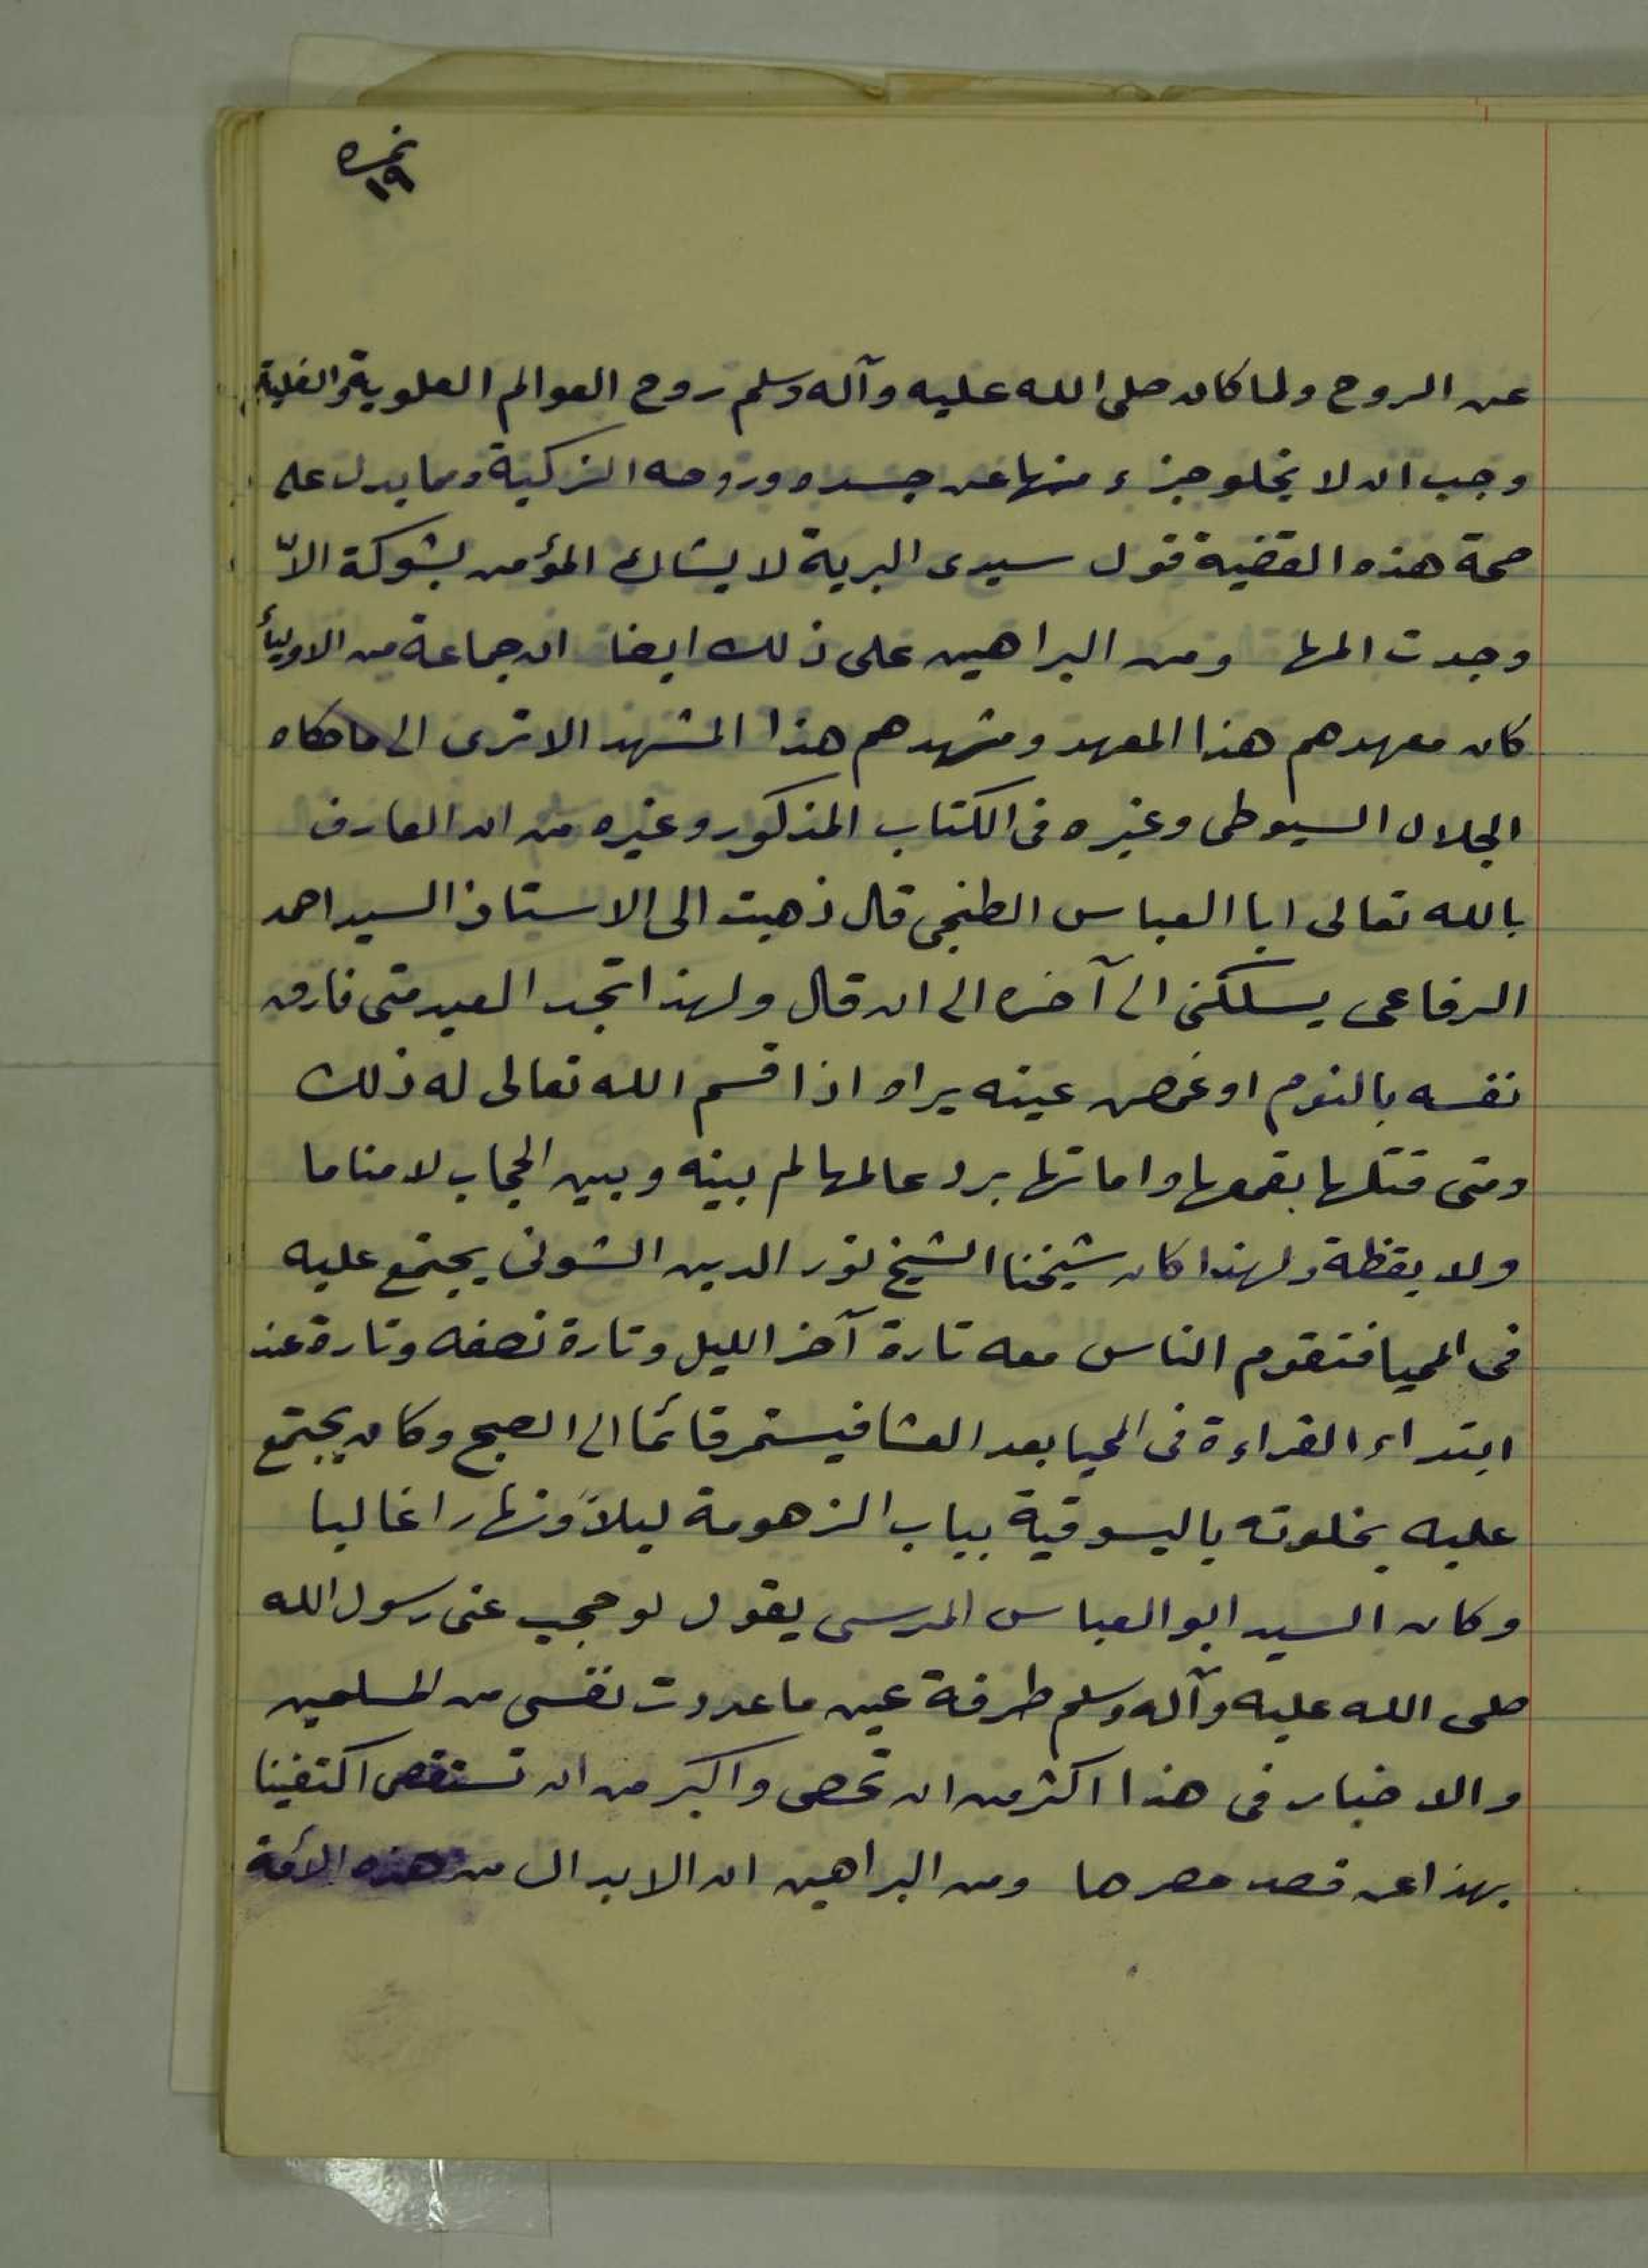 نمره
١٩
عن الروح ولما كان صلى الله عليه وآله وسلم روح العوالم العلوية والسفلية
وجب ان لا يخلو جزء منها عن جسده وروحه الزكية ومما يدل على
صحة هذه القضية قول سيدى البرية لا يشاك المؤمن بشوكة الاّ
وجدت المها ومن البراهين على ذلك ايضا ان جماعة من الاولياء
كان معهدهم هذا المعهد ومشهدهم هذا المشهد الا ترى الى ما حكاه
الجلال السيوطى وغيره فى الكتاب المذكور وغيره من ان العارف
بالله تعالى ابا العباس الطنجى قال ذهبت الى الاستاذ السيد احمد
الرفاعى يسلكنى الى آخره الى ان قال ولهذا تجد العبد متى فارق
نفسه بالنوم او غمض عينه يراه اذا قسم الله تعالى له ذلك
ومتى قتلها بقمعها واماتها برد عالمها لم بينه وبين الحجاب لا مناما
ولا يقظة ولهذا كان شيخنا الشيخ نور الدين الشونى يجتمع عليه
فى المحيا فتقوم الناس معه تارة آخر الليل وتارة نصفه وتارة عند
ابتداء القراءة فى المحيا بعد العشا فيستمر قائما الى الصبح وكان يجتمع
عليه بخلوته باليسوقية بباب الزهومة ليلاً ونهارا غالبا
وكان السيد ابو العباس المرسى يقول لو حجب عنى رسول الله
صلى الله عليه وآله وسلم طرفة عين ما عددت نفسى من المسلمين
والاخبار فى هذا اكثر من ان تحصى واكبر من ان تستقصى اكتفينا
بهذا عن قصد حصرها ومن البراهين ان الابدال من هذه الأمة